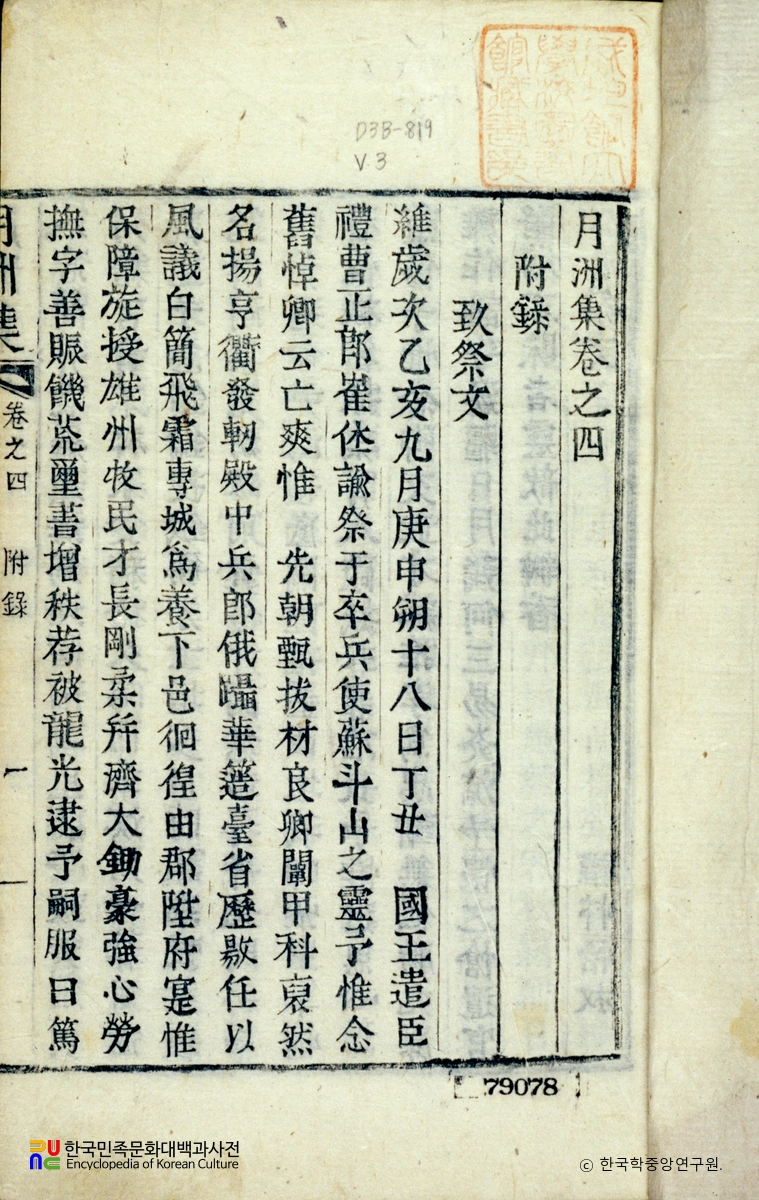 月洲集卷之四
附錄
致祭文
維歲次乙亥九月庚申朔十八日丁丑 國王遣臣
禮曹正郎崔休諭祭于卒兵使蘇斗山之靈予惟念
舊悼卿云亡爽惟 先朝甄拔材良卿闡甲科裒然
名揚亨衢發軔殿中兵郎俄躡華簉臺省歷敭任以
風議白簡飛霜專城爲養下邑徊徨由郡陞府寔惟
保障旋授雄州牧民才長剛柔幷濟大鋤豪強心勞
撫字善賑饑荒璽書增秩荐被龍光逮予嗣服曰篤
月洲集 卷之四 附錄 一
D3B-819
V.3
79078
한국민족문화대백과사전
Encyclopedia of Korean Culture
© 한국학중앙연구원.